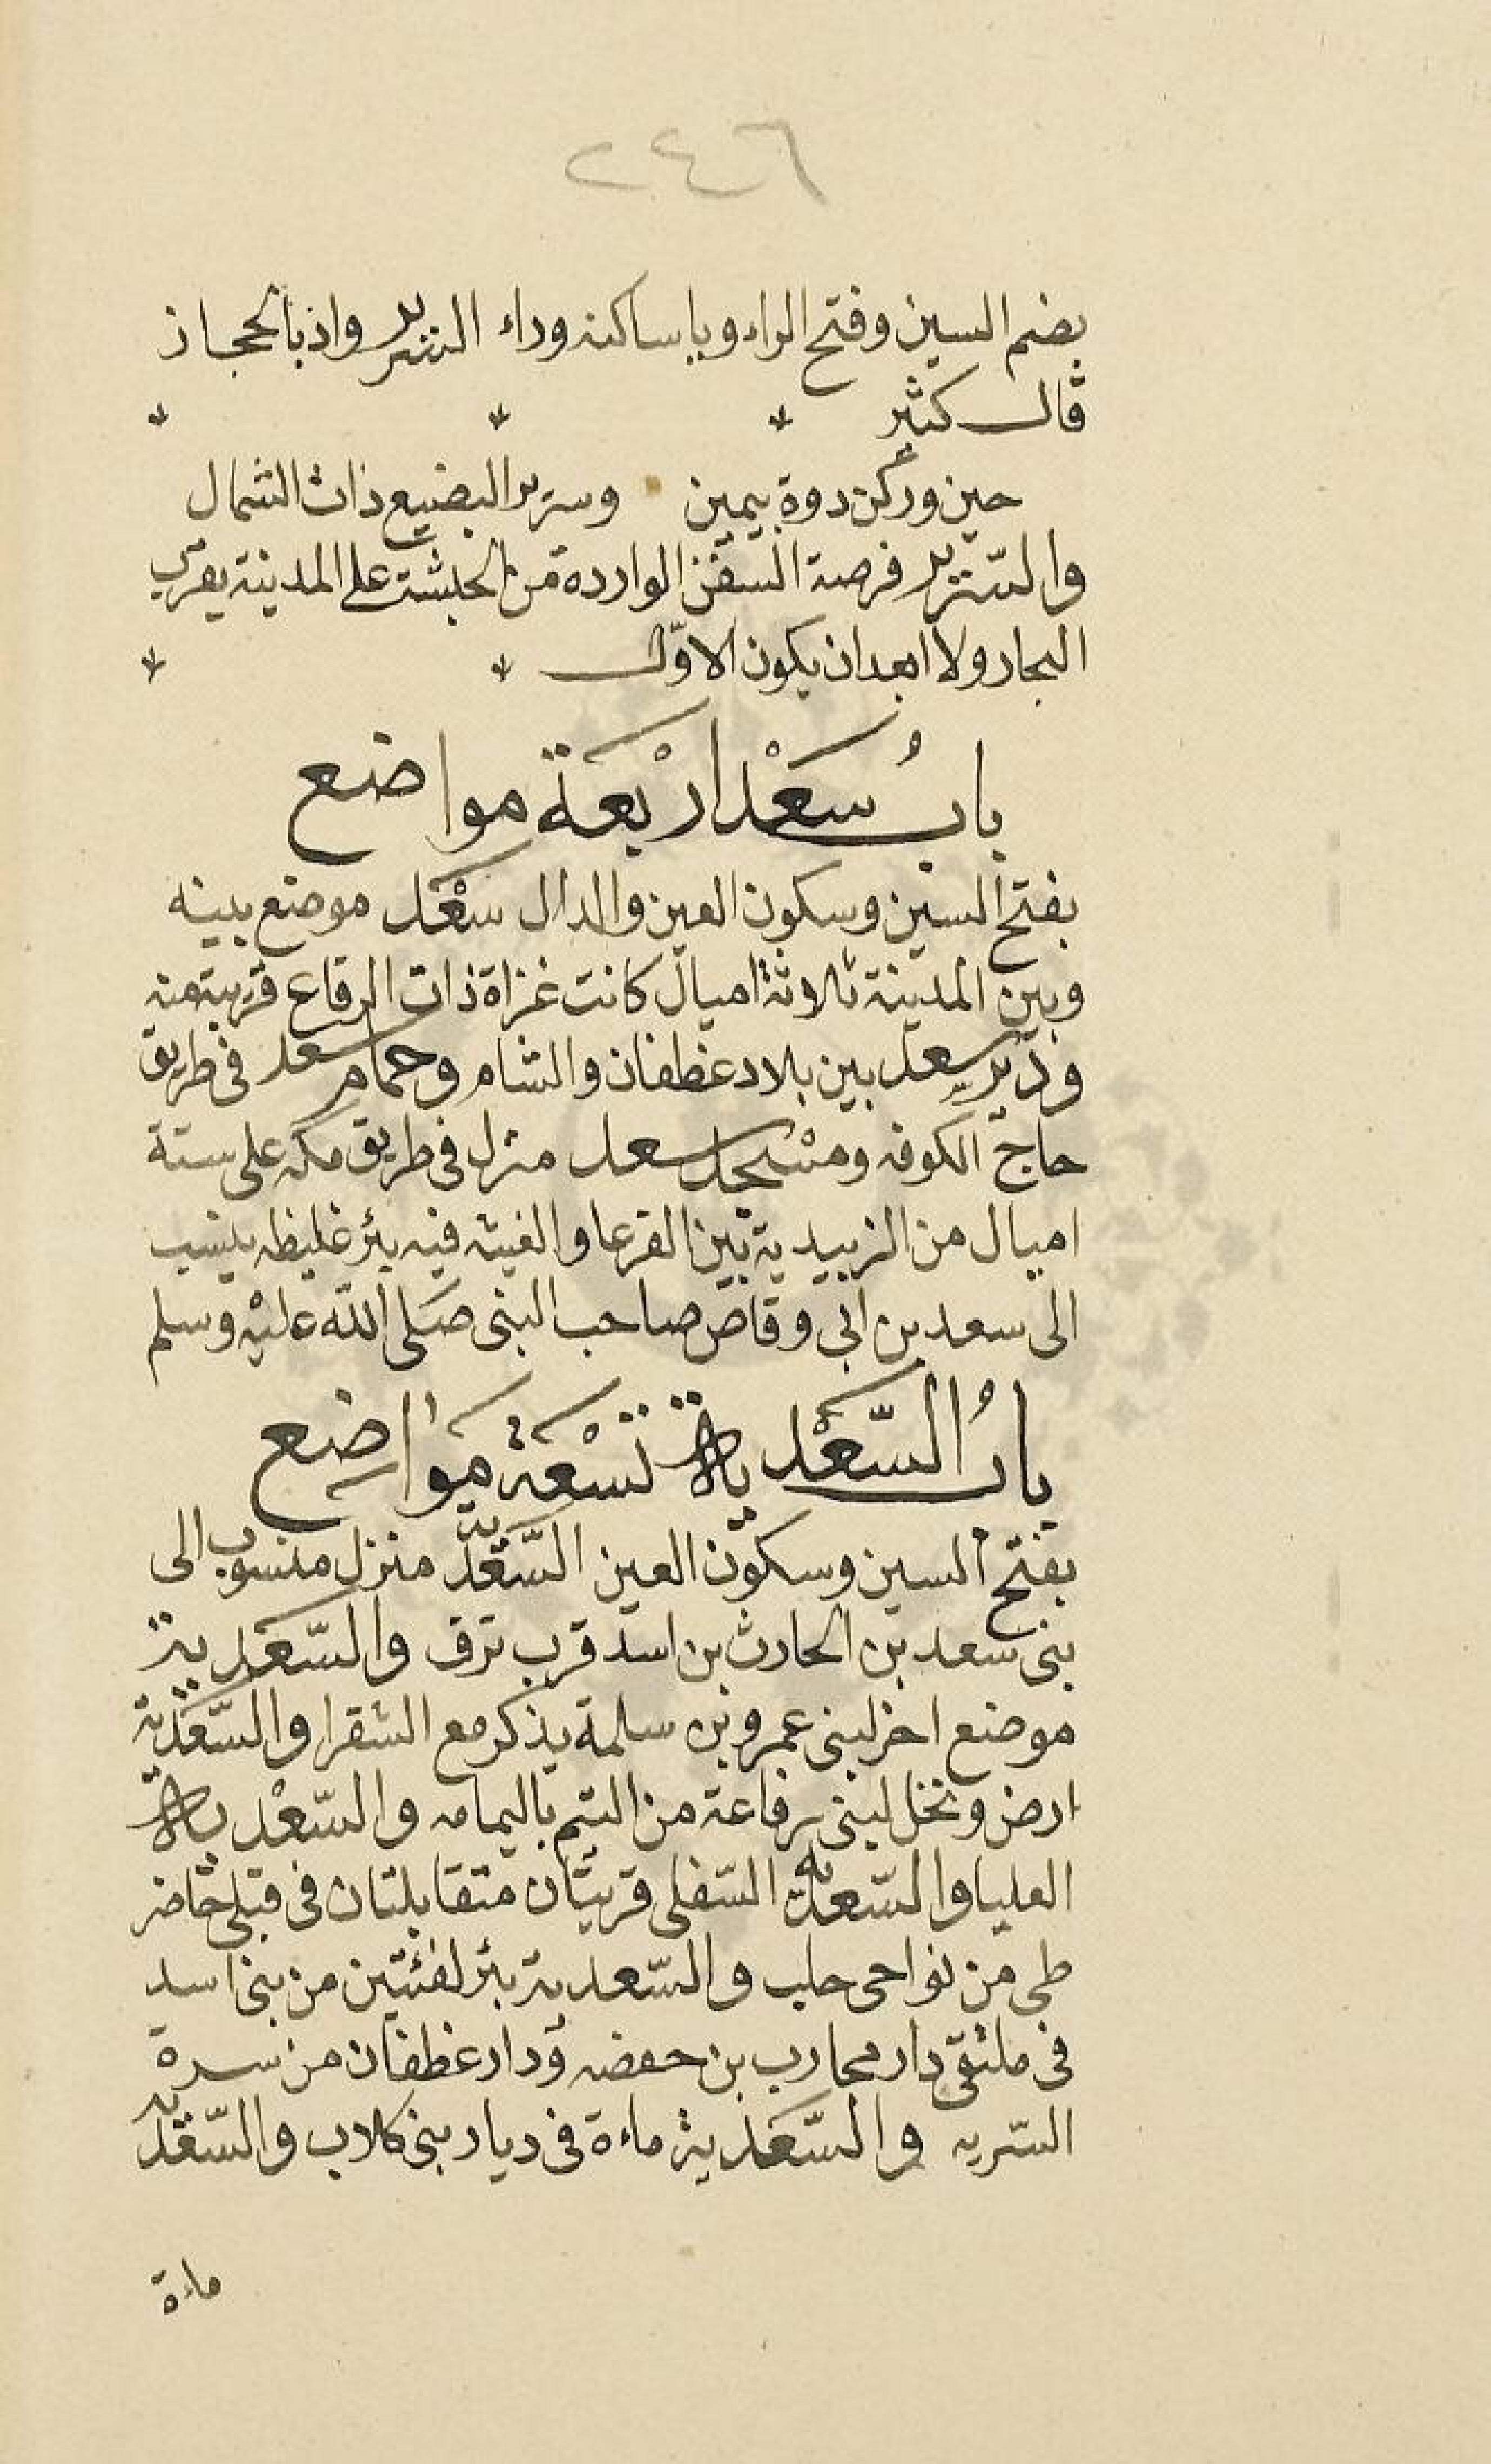 ٢٤٦
بضم السين وفتح الراء ويا ساكنه وراء السرير واد بالحجاز
قال كثير
حين وركن دوة بيمين وسرير البضيع ذات الشمال
والسرير فرصة السفن الواردة من الحبشة على المدينة بقرب
البجار ولا ابعد ان يكون الاوّل
بابُ سَعْد اربعة مواضع
بفتح السين وسكون العين والدال سَعْد موضع بينه
وبين المدينة ثلاثة اميال كانت غزاة ذات الرقاع قريبة منه
ودير سعد بين بلاد غطفان والشام وحمام سعد فى طريق
حاج الكوفه ومسْجد سعد منزل فى طريق مكه على ستة
اميال من الزبيدية بين القرعا والغيثه فيه بئر غليظه ينسب
الى سعد بن ابى وقاص صاحب النبى صَلى الله عليْه وسلم
بابُ السَّعْدية تسْعَة مَواضِع
بفتح السين وسكون العين السَّعْدية منزل منسوب الى
بنى سعد بن الحارث بن اسد قرب ترف والسَّعَدية
موضع اخر لبنى عمرو بن سلمة يذكر مع الشقرا والسَّعَدية
ارض ونخل لبنى رفاعة من التيم باليمامه والسَّعْدية
العليا والسَّعدية السّفلى قريتان متقابلتان فى قبلى حاضر
طى من نواحى حلب والسَّعدية بئر لفئتين من بنى اسد
فى ملتقى دار محارب بن حفضه ودار غطفان من سرة
السّريه والسَّعَدية ماءة فى ديار بنى كلاب والسَّعْدية
ماءة